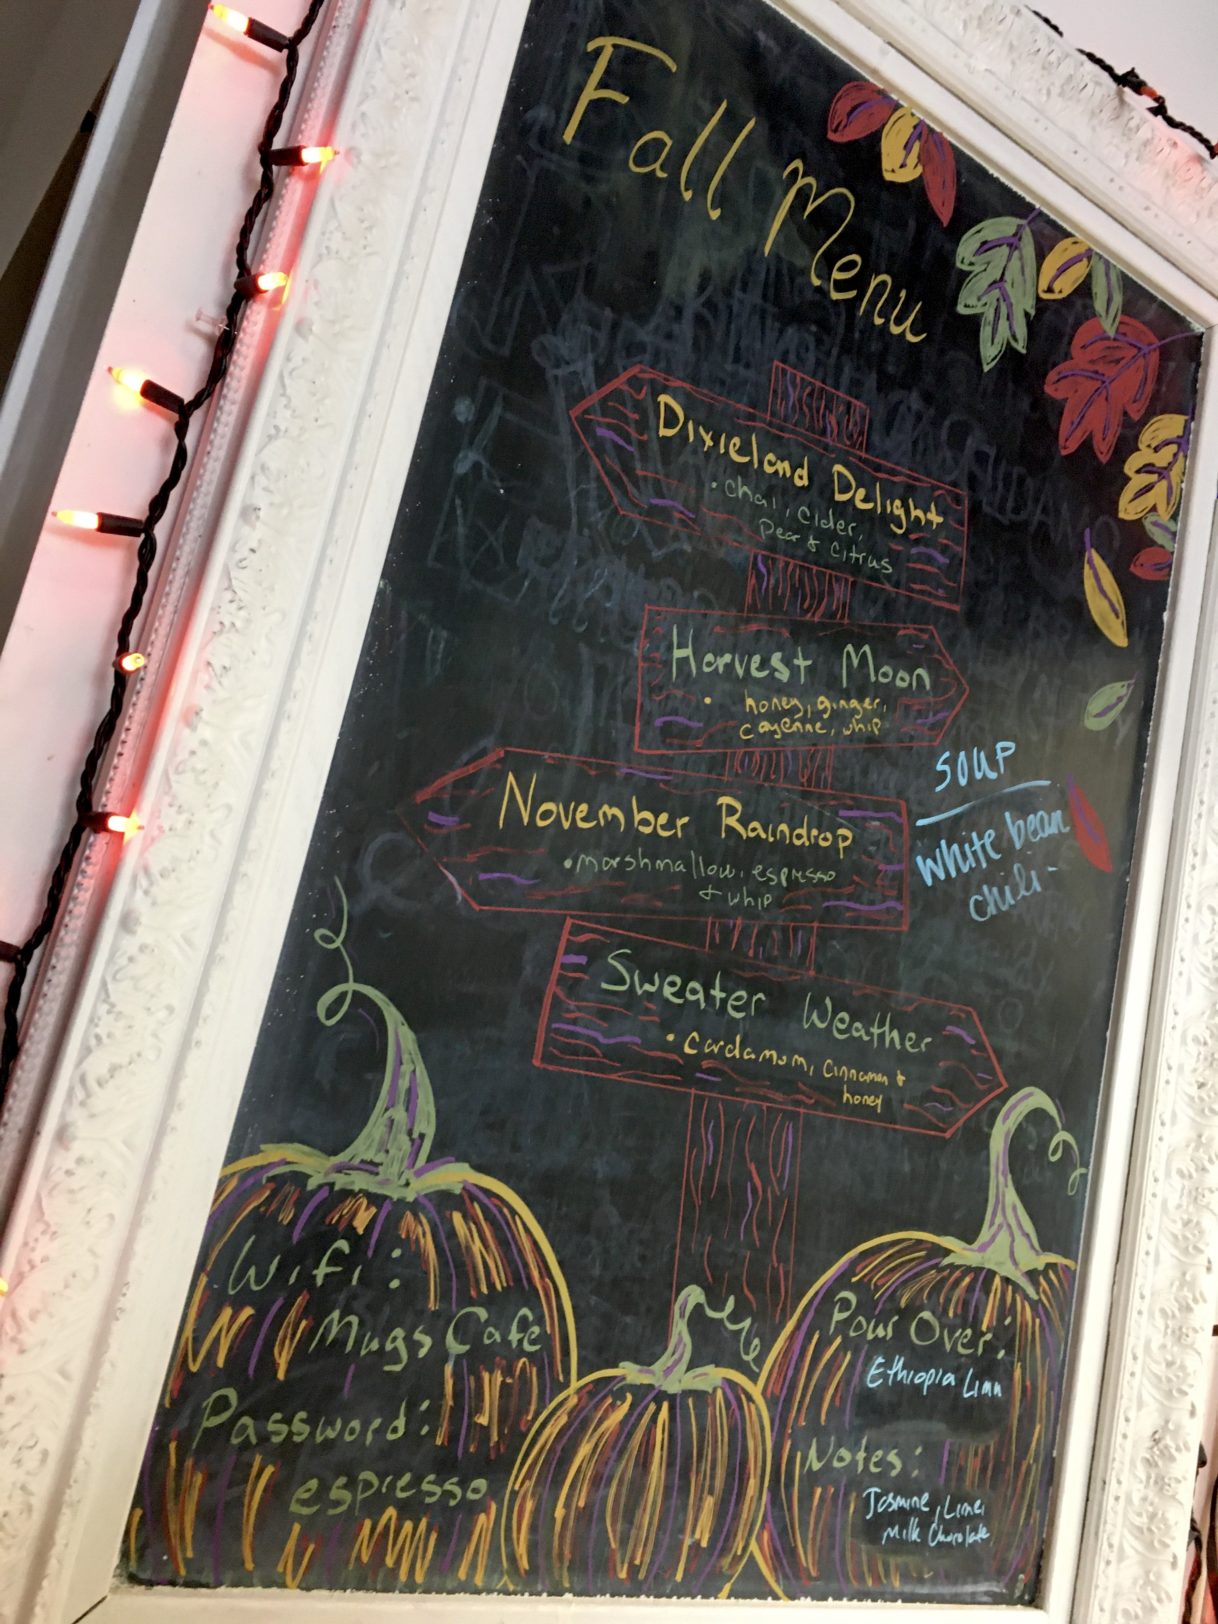 Fall Menu
Dixieland Delight
• chai, cider,
pear & citrus
Harvest Moon
• honey, ginger,
cayenne, whip
November Raindrop
• marshmallow, espresso
& whip
Sweater Weather
• cardamom, cinnamon &
honey
SOUP
White bean
chili -
Wifi:
Mugs Cafe
Password:
espresso
Pour Over:
Ethiopia Limu
Notes:
Jasmine, Lime,
Milk Chocolate